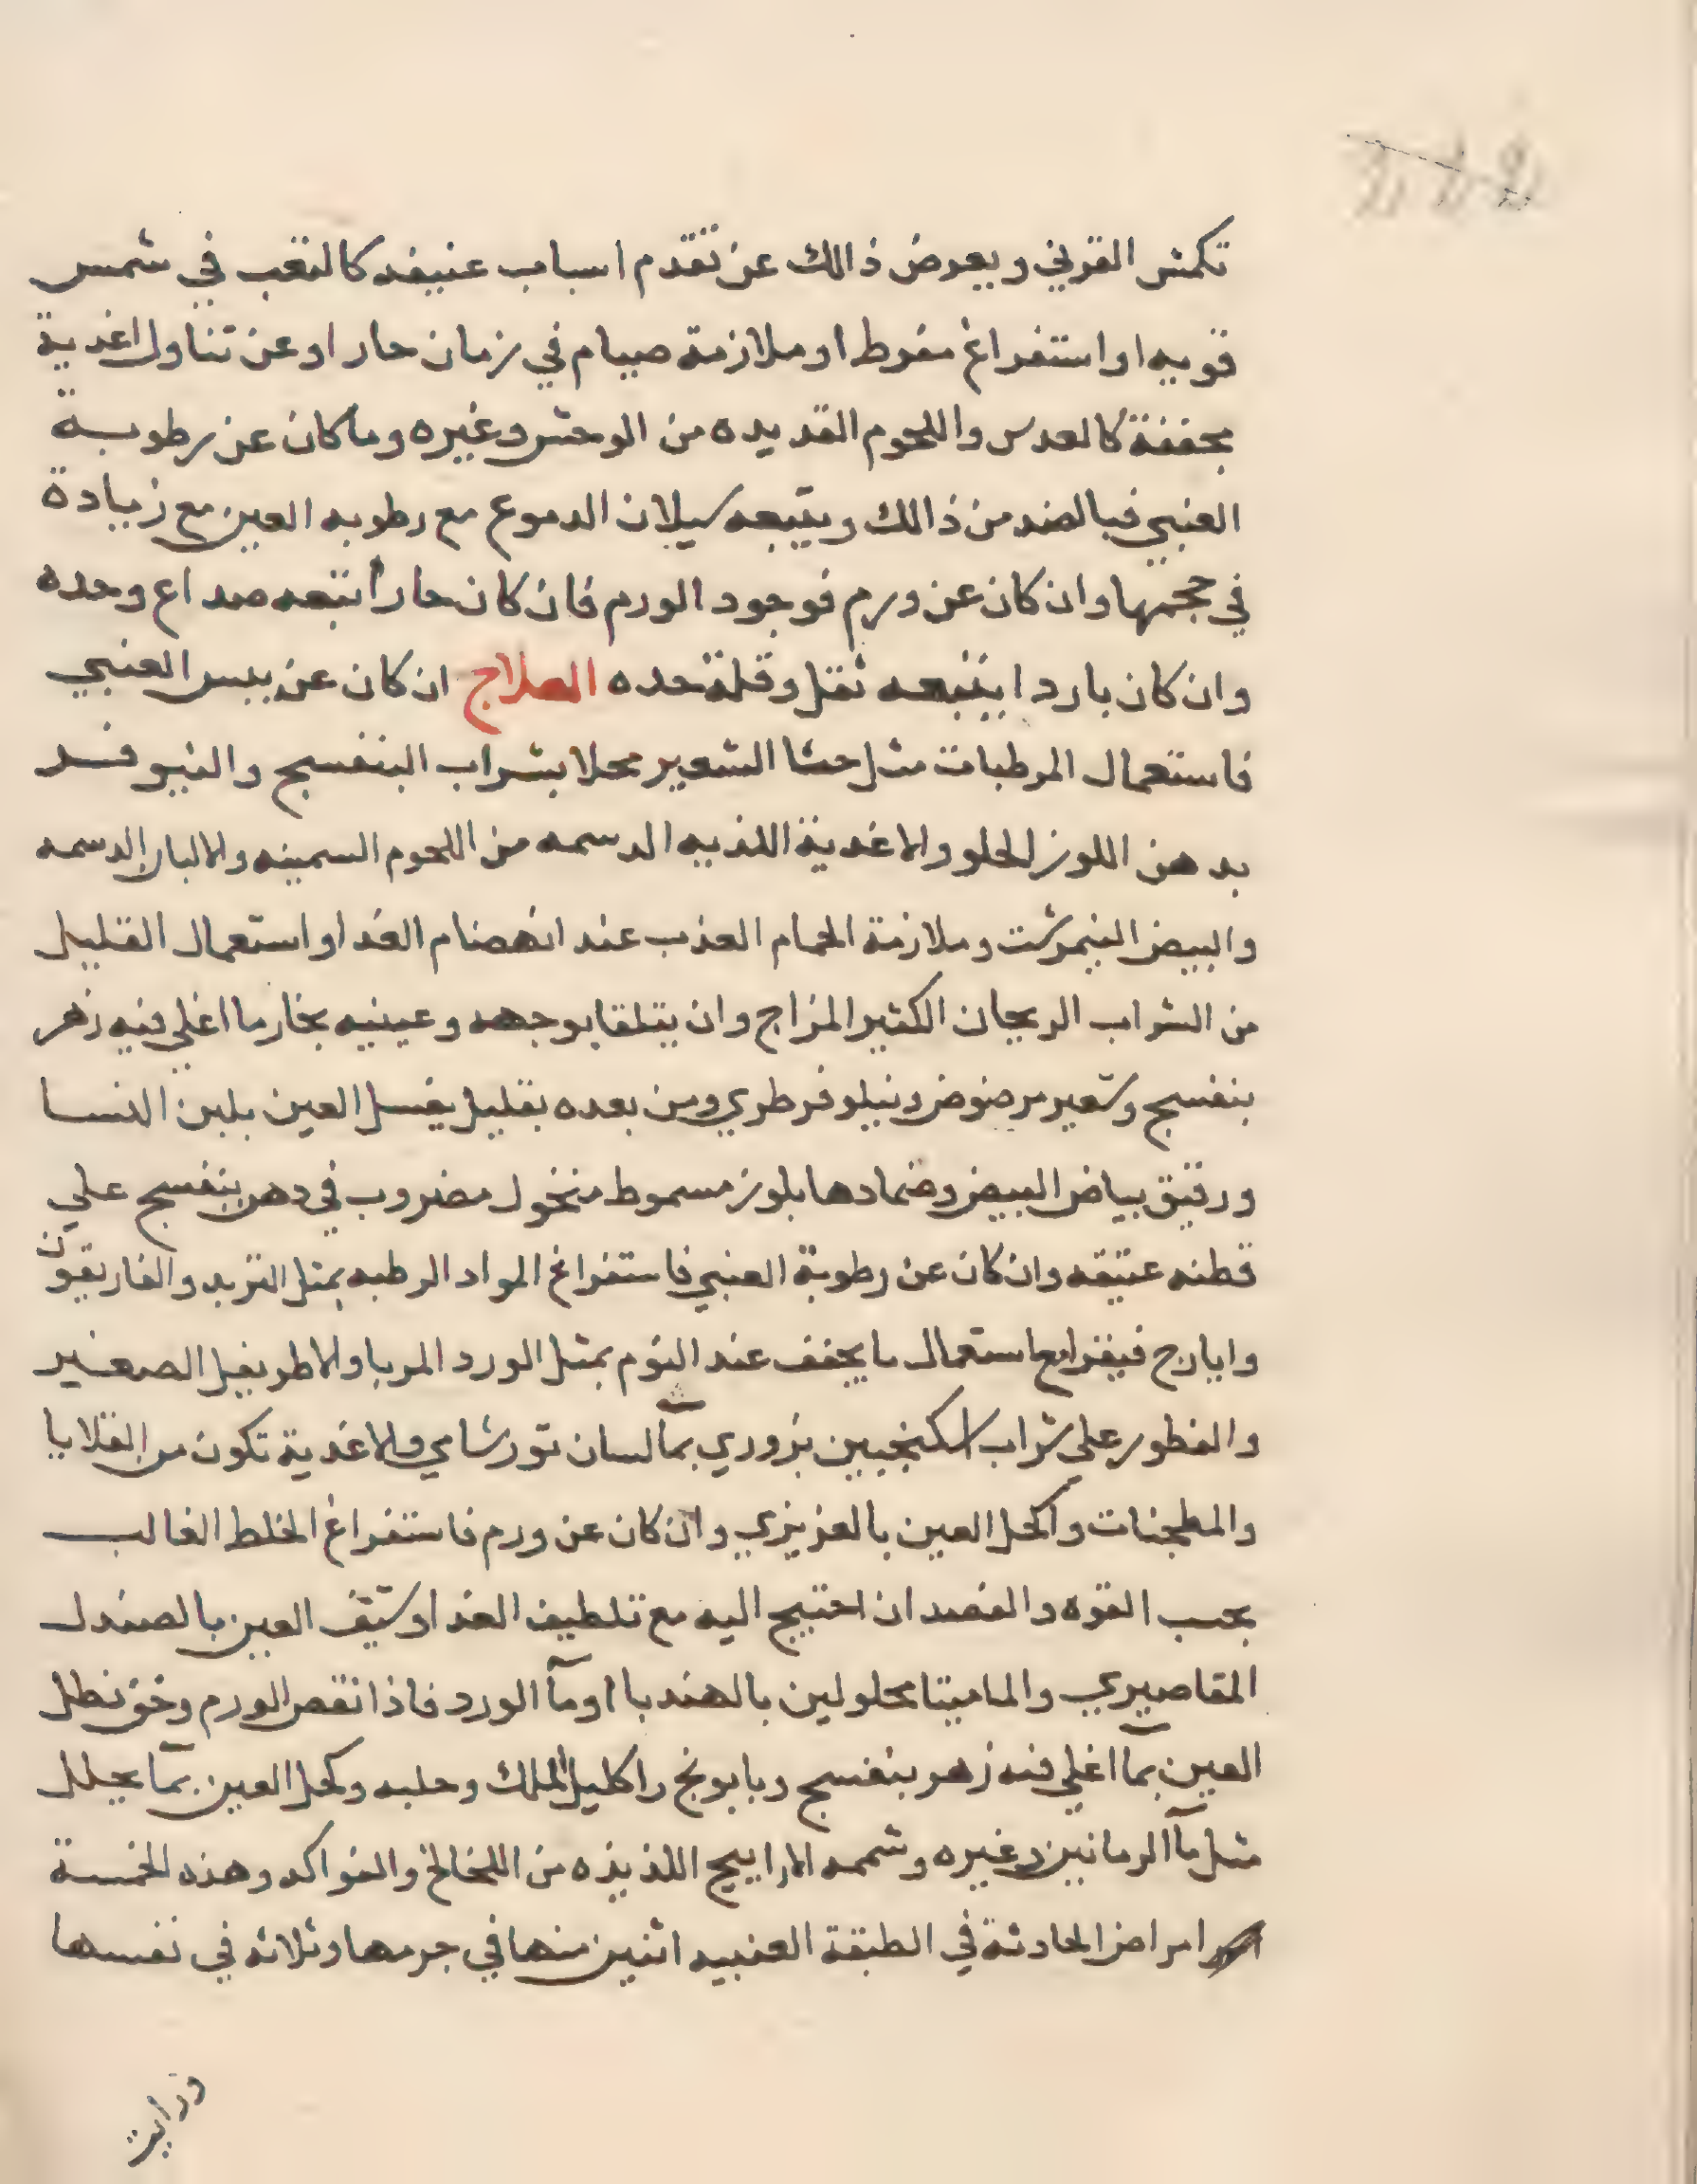 تكمش القرني ويعرض ذالك عن تقدم اسباب عنيفه كالتعب في شمس
قويه او استفراغ مفرط او ملازمة صيام في زمان حار او عن تناول اغدية
مجففة كالعدس واللحوم القديده من الوحش وغيره وما كان عن رطوبة
العنبي فبالضد من ذالك ويتبعه سيلان الدموع مع رطوبه العين مع زيادة
في حجمها وان كان عن ورم فوجود الورم فان كان حاراً اتبعه صداع وحده
وان كان باردا يتبعه ثقل وقلة حده العلاج ان كان عن يبس العنبي
فاستعمال المرطبات مثل حشا الشعير محلا بشراب البنفسج والنيوفر
بدهن اللوز الحلو والاغدية اللذيه الدسمه من اللحوم السمينه والالبان الدسمه
والبيض النيمرشت وملازمة الحمام العذب عند انهضام الغدا واستعمال القليل
من الشراب الريحان الكثير المزاج وان يتلقا بوجهه وعينيه بخار ما اغلي فيه زهر
بنفسج وشعير مرضوض ونيلوفر طري ومن بعده بقليل يغسل العين بلبن النسا
ورقيق بياض البيض وضمادها بلوز مسموط منخول مضروب في دهن بنفسج علي
قطنه عتيقه وان كان عن رطوبة العنبي فاستفراغ المواد الرطبه بمثل التربد والغاريقون
وايارج فيقرا مع استعمال ما يجفف عند النوم بمثل الورد المربا والاطريفل الصغير
والفطور علي شراب اسكنجبين بزوري بمآ لسان تور شامي والاغدية تكون من القلايا
والمطجنات واكحل العين بالعزيزي وان كان عن ورم فاستفراغ الخلط الغالب
بحسب القوه والفصد ان احتيج اليه مع تلطيف الغدا وشيّف العين بالصندل
المقاصيري والماميتا محلولين بالهندبا او مآ الورد فاذا نقص الورم وخف نطل
العين بمآ اغلي فيه زهر بنفسج وبابونج واكليل الملك وحلبه وكحل العين بمآ يحلل
مثل مآ الرمانين وغيره وشممه الاراييح اللذيذه من اللخالخ والفواكه وهذه الخمسة
امراض الحادثة في الطبقة العنبيه اثنين منها في جرمها وثلاثه في نفسها